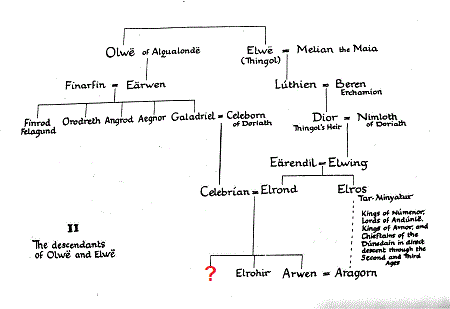 Olwë of Alqualondë
Elwë = Melian the Maia
(Thingol)
Finarfin = Eärwen
Lúthien = Beren
Erchamion
Finrod
Felagund
Orodreth Angrod Aegnor Galadriel = Celeborn
of Doriath
Dior = Nimloth
Thingol's Heir
of Doriath
Eärendil = Elwing
Celebrían = Elrond
Elros
Tar-Minyatur
Kings of Númenor,
Lords of Andúnië,
Kings of Arnor, and
Chieftains of the
Dúnedain in direct
descent through the
Second and Third
Ages
II
The descendants
of Olwë and Elwë
?
Elrohir
Arwen = Aragorn